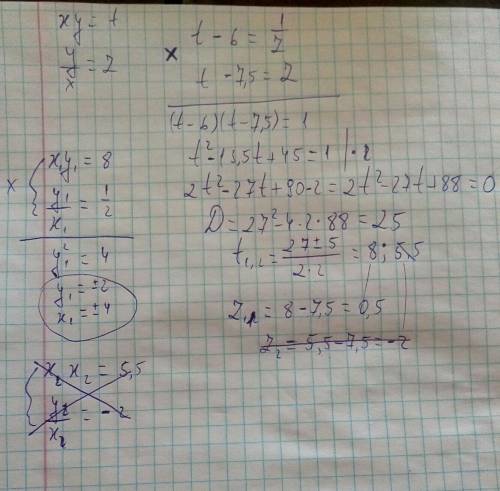 xy = t
y/x = z
× t - 6 = 1/z
t - 7,5 = z
(t-6)(t-7,5) = 1
t² - 13,5t + 45 = 1 |·2
2t² - 27t + 90 - 2 = 2t² - 27t + 88 = 0
D = 27² - 4·2·88 = 25
t₁,₂ = (27±5)/(2·2) = 8; 5,5
z₁ = 8 - 7,5 = 0,5
z₂ = 5,5 - 7,5 = -2
× { x₁y₁ = 8
y₁/x₁ = 1/2
y₁² = 4
y₁ = ±2
x₁ = ±4
{ x₂ x₂ = 5,5
y₂/x₂ = -2